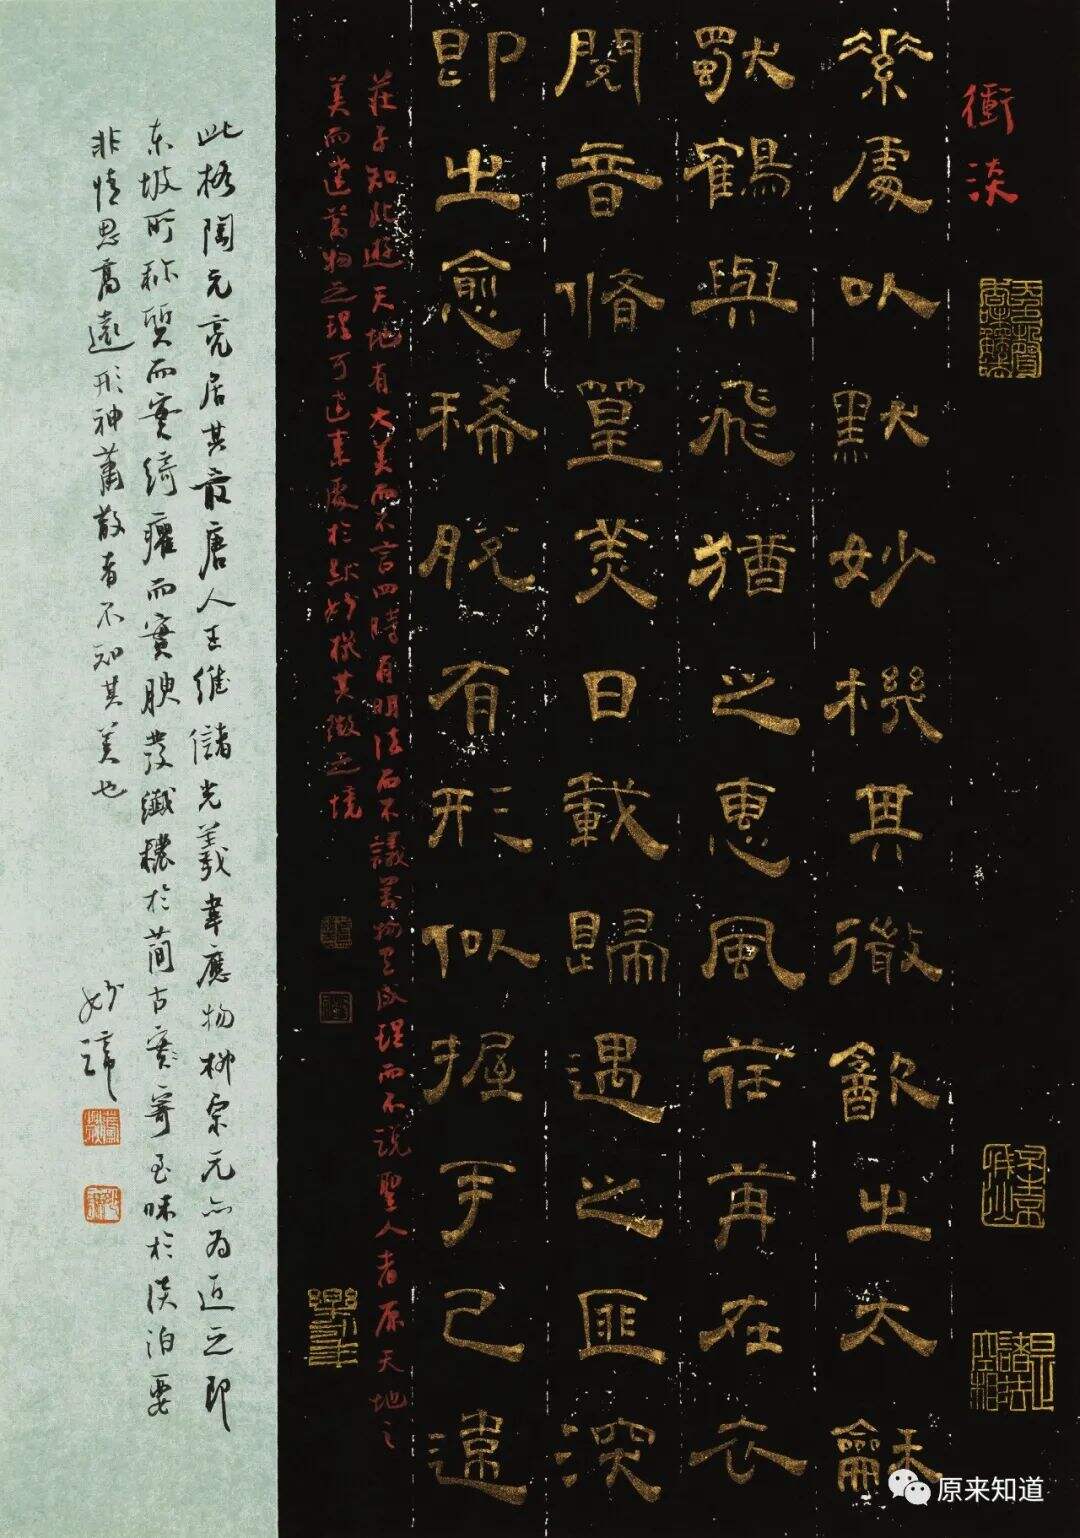 衝淡
素處以默妙機其微飲之太龢
獨鶴與飛猶之惠風荏苒在衣
閱音脩篁美日載歸遇之匪深
即之愈稀脫有形似握手已違
莊子知北遊天地有大美而不言四時有明法而不議萬物有成理而不說聖人者原天地之
美而達萬物之理可達素處於默妙機其微之境
此格陶元亮居其最唐人王維儲光羲韋應物柳宗元亦為近之即
東坡所称質而實綺癯而實腴發纖穠於簡古實寄至味於淡泊要
非情思高遠形神蕭散者不知其美也
妙諦
原来知道